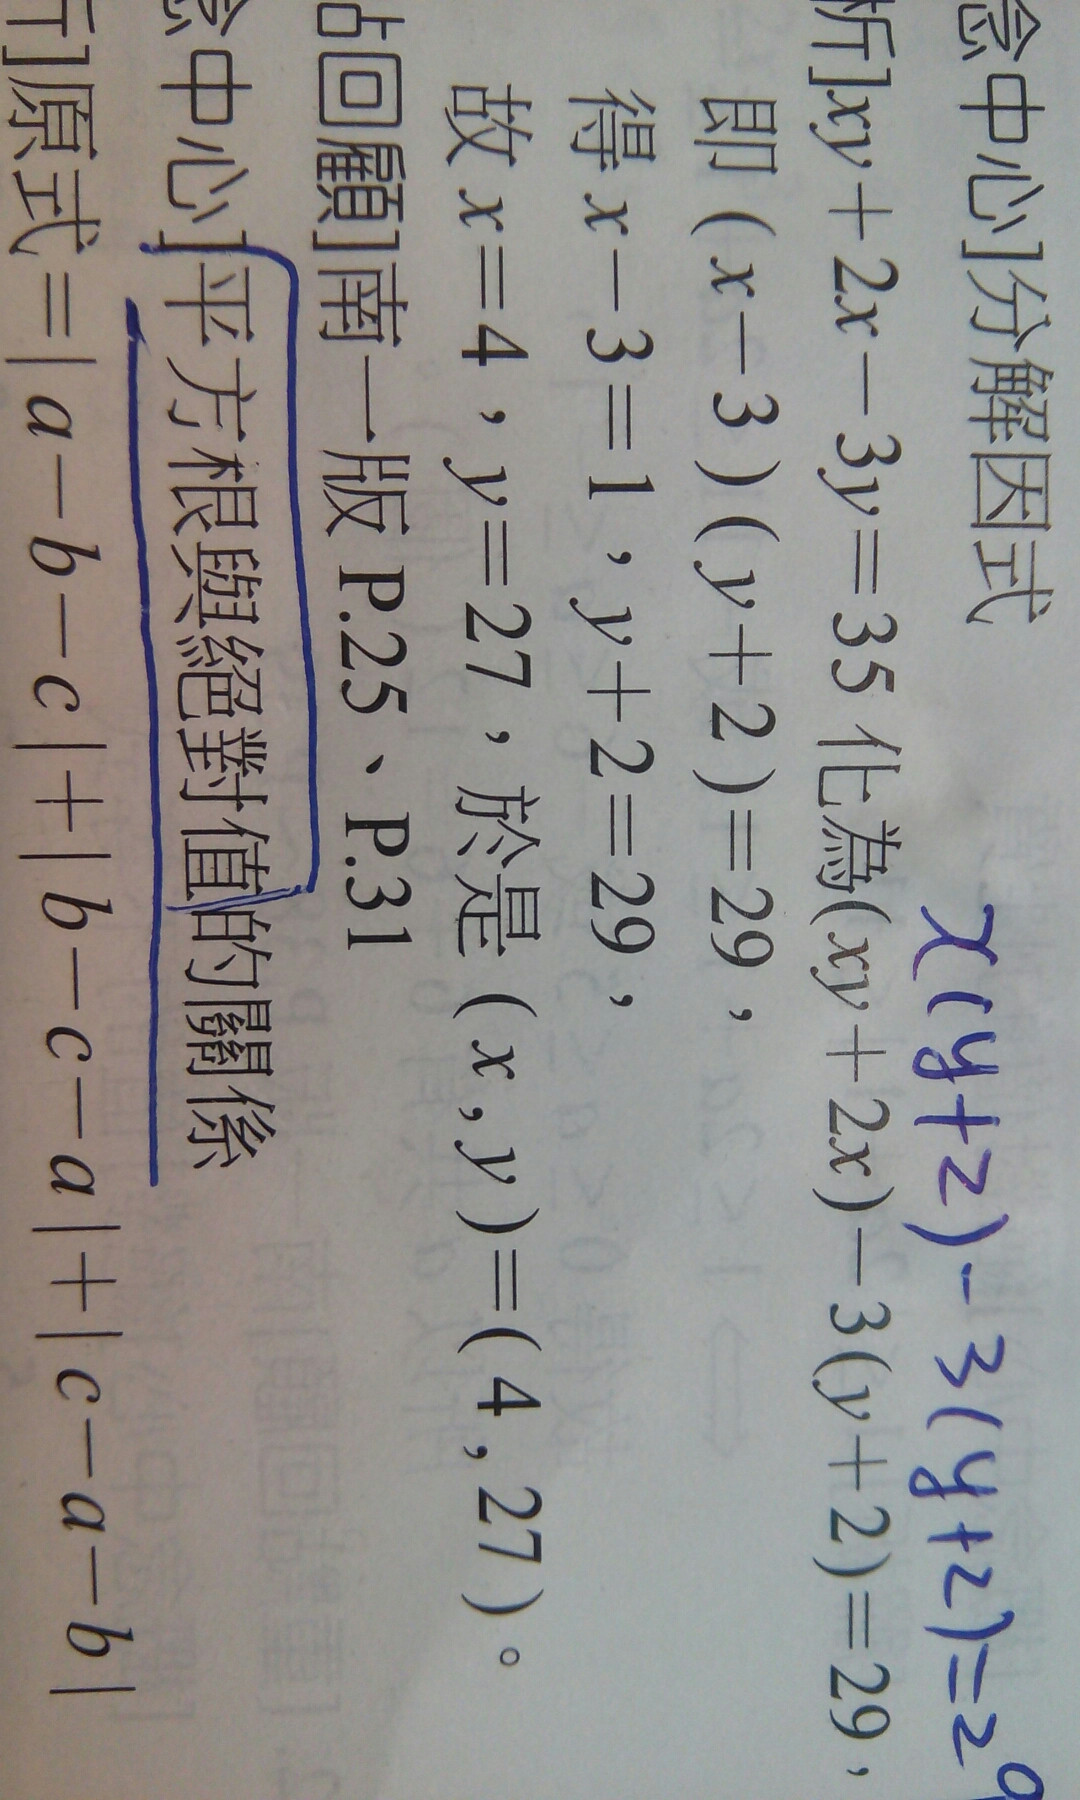 念中心]分解因式
x(y+2)-3(y+2)=29
析]xy+2x-3y=35 化為(xy+2x)-3(y+2)=29,
即(x-3)(y+2)=29,
得 x-3=1,y+2=29,
故 x=4,y=27,於是(x,y)=(4,27)。
占回顧]南一版 P.25、P.31
念中心]平方根與絕對值的關係
行]原式=|a-b-c|+|b-c-a|+|c-a-b|